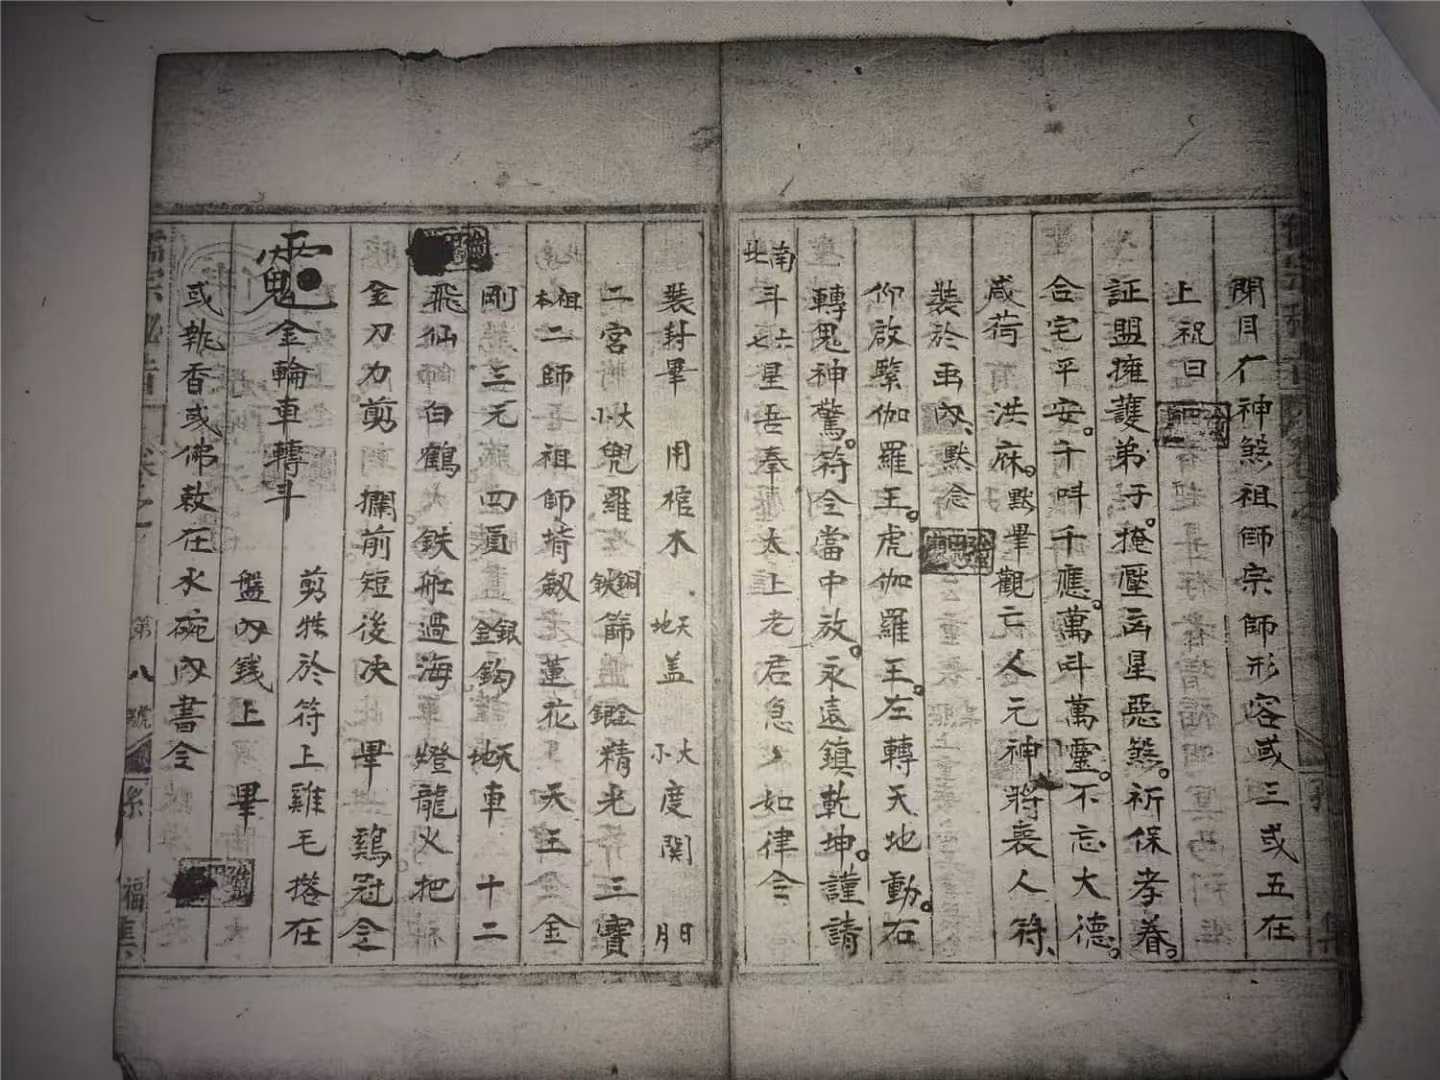 閉目存神煞祖師宗師形容或三或五在
上祝曰
証盟擁護弟子。掩壓凶星惡煞。祈保孝眷。
合宅平安。千呌千應。萬呌萬靈。不忘大德。
咸荷 洪庥。默畢觀亡人元神將喪人符、
裝於函內、默念
仰啟緊伽羅王。虎伽羅王。左轉天地動。右
轉鬼神驚。符令當中放。永遠鎮乾坤。謹請
南北斗六七星吾奉太上老君急〻如律令
裝封畢 用棺木 天地盖 大小度関 日月
二宮 大小兜羅 銅鉄篩 精光 三寶
祖本二師 祖師掎劔蓮花 天王 金
剛 三元 四直 銀金鈎 天地車 十二
飛仙 白鶴 鉄船過海 燈龍火把
金刀力剪 攔前短後决 畢 鷄冠令
金輪車轉斗 剪牲於符上雞毛搭在
盤內錢上 畢
或執香或佛敕在水碗內書令
第八號
福集